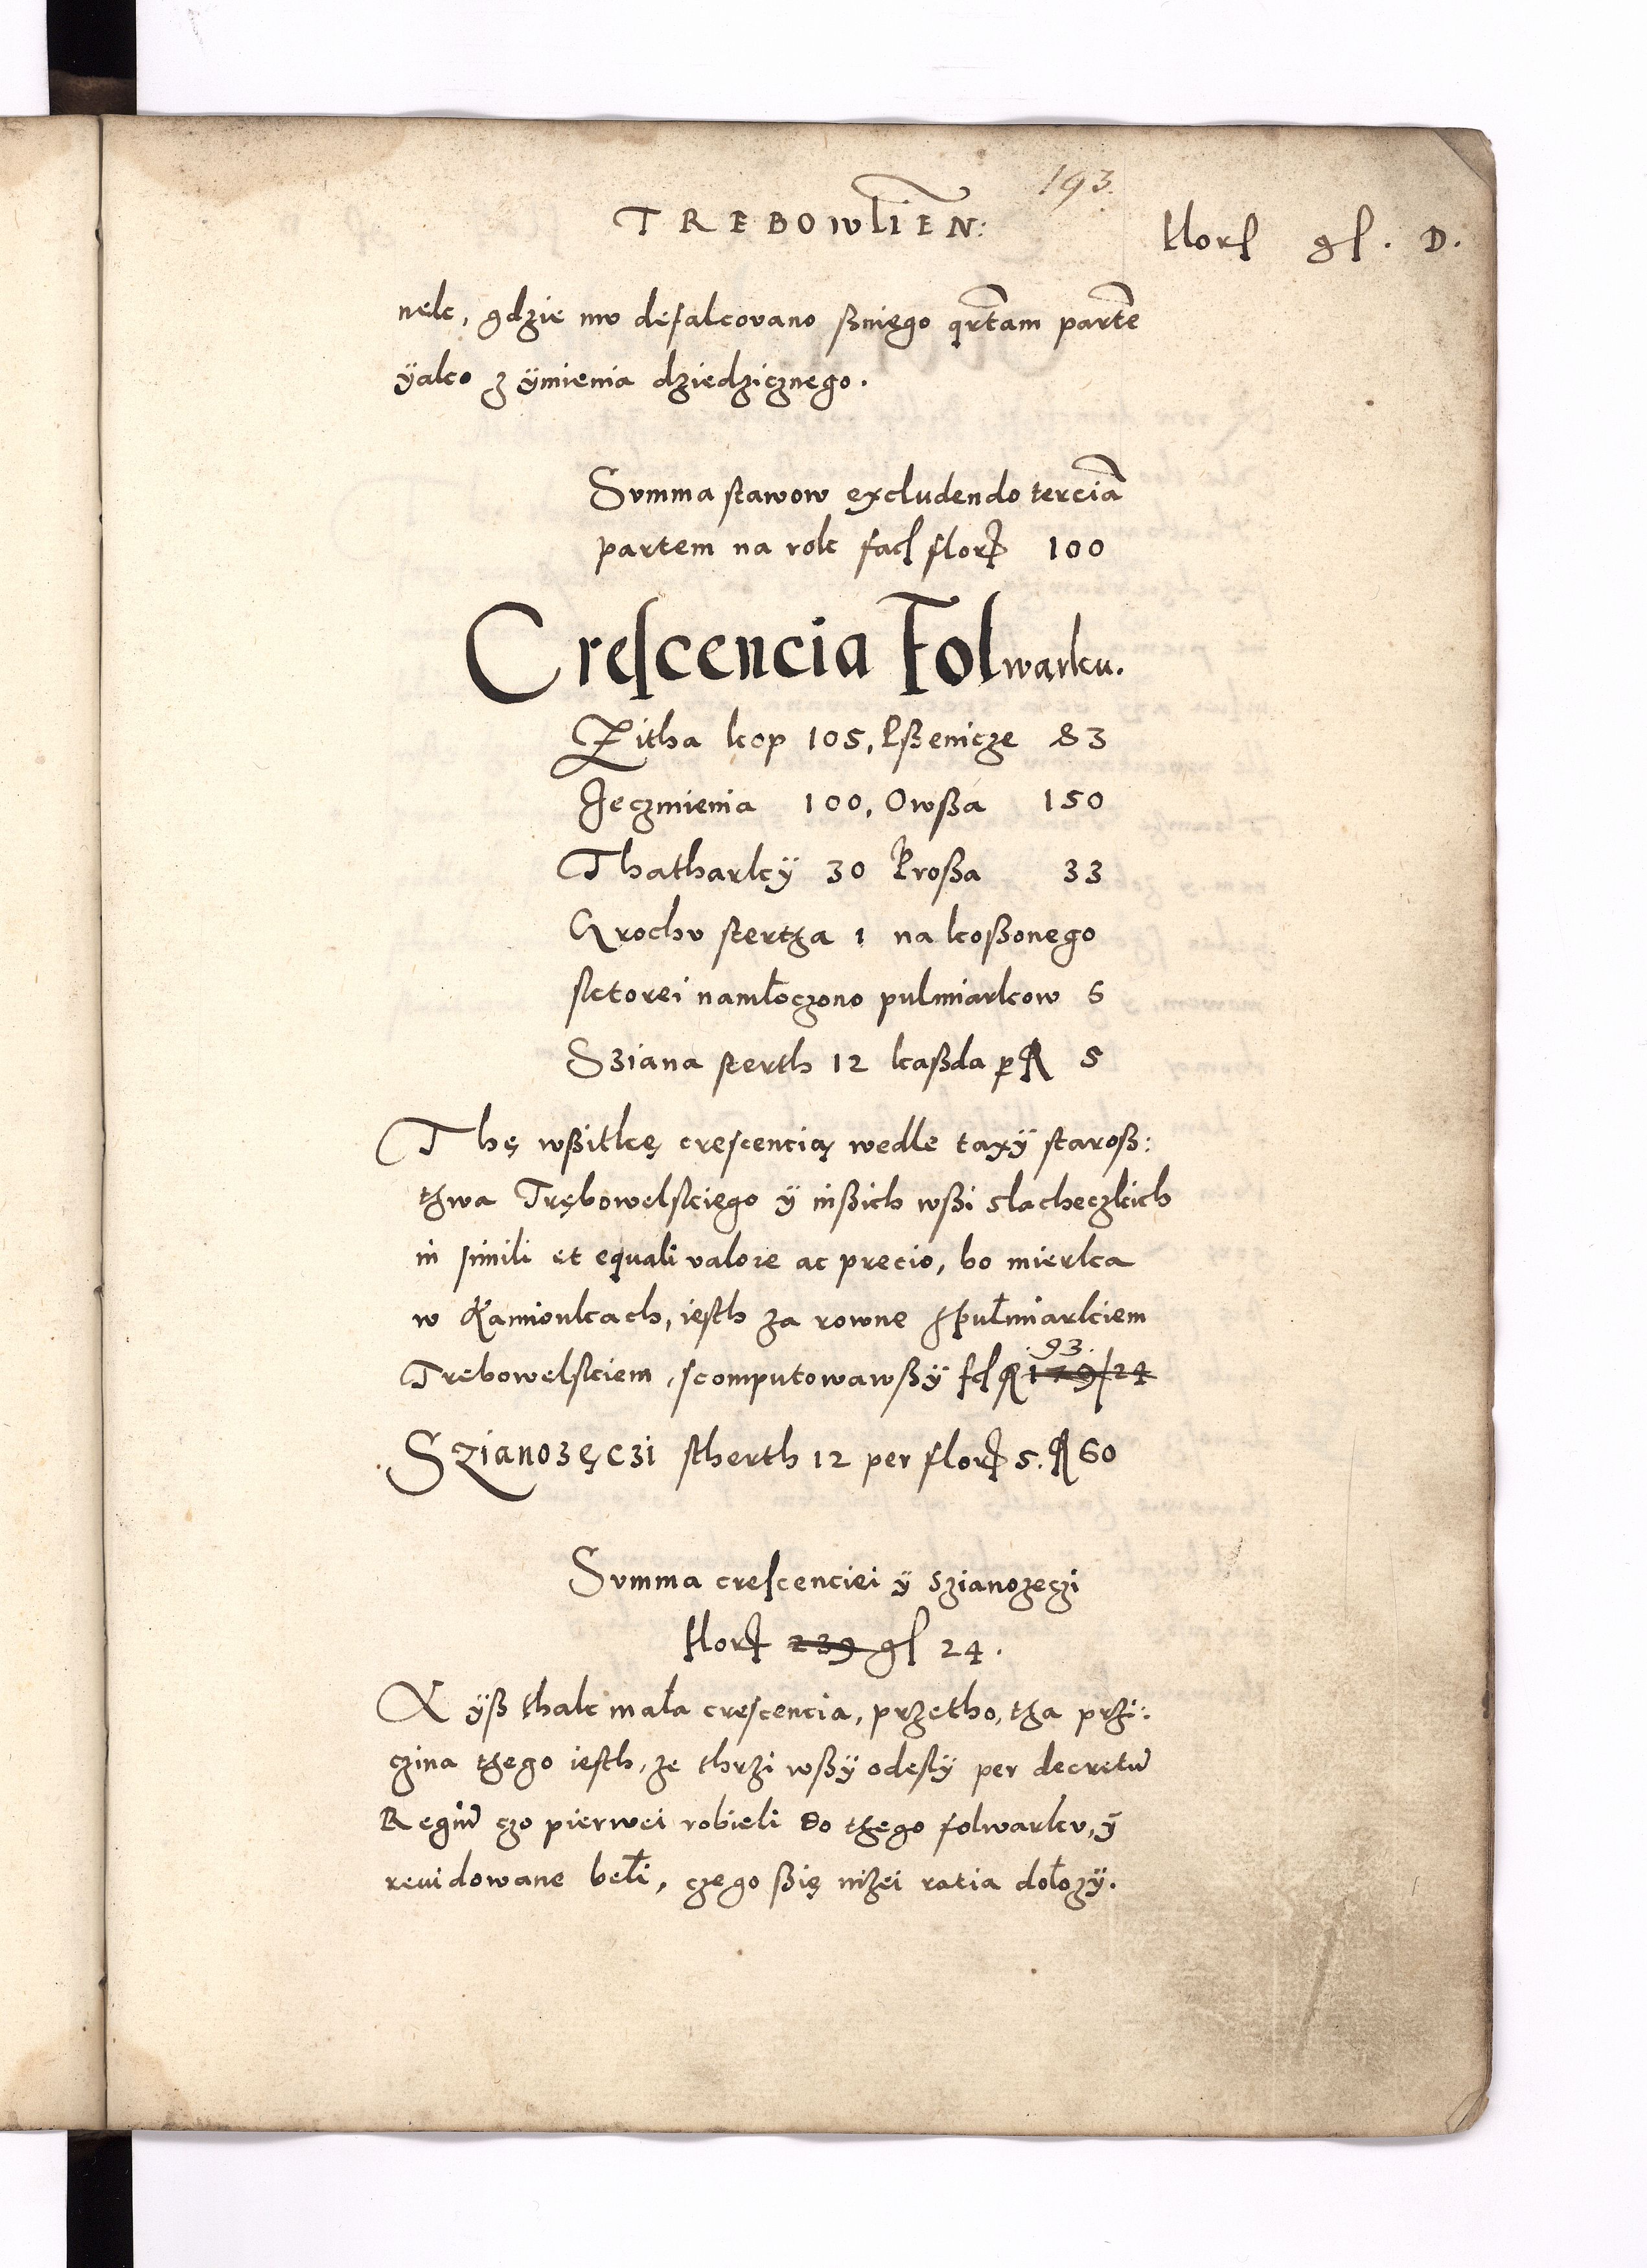 193.
TREBOWLIEN:
flor gſ. D.
nek, gdzie mv defalcovano ßniego qrtam parte
ÿako z ÿmienia dziedzicznego.
Svmma stawow excludendo tercia
partem na rok facſ flor 100
Creſcencia Folwarku.
Zitha kop 105, Pßenicze 83
Jeczmienia 100, Owßa 150
Thatharkÿ 30 Proßa 33
Grochv stertha 1 na koßonego
sktorei namłoczono pulmiarkow 6
Sziana sterth 12 kaßda p fl 5
Thę wßitkę crescencią wedle taxÿ staroß:
thwa Trębowelskiego ÿ inßich wßi slacheczkich
in simili et equali valore ac precio, bo mierka
w Kamionkach, iesth za rowne spułmiarkiem
93.
Trebowelskiem, scomputowawßÿ fcſ fl 179/24
Szianozęczi stherth 12 per flor 5. fl 60
Svmma creſcenciei ÿ szianozeczi
flor 239 gſ 24.
A ÿß thak mała crescencia, przetho, tha przi:
czina thego iesth, ze thrzi wßÿ odesłÿ per decretu
Regiu czo pierwei robieli do thego folwarkv, ÿ
reuidowane beli, czego ßię niżei ratia dołozÿ.